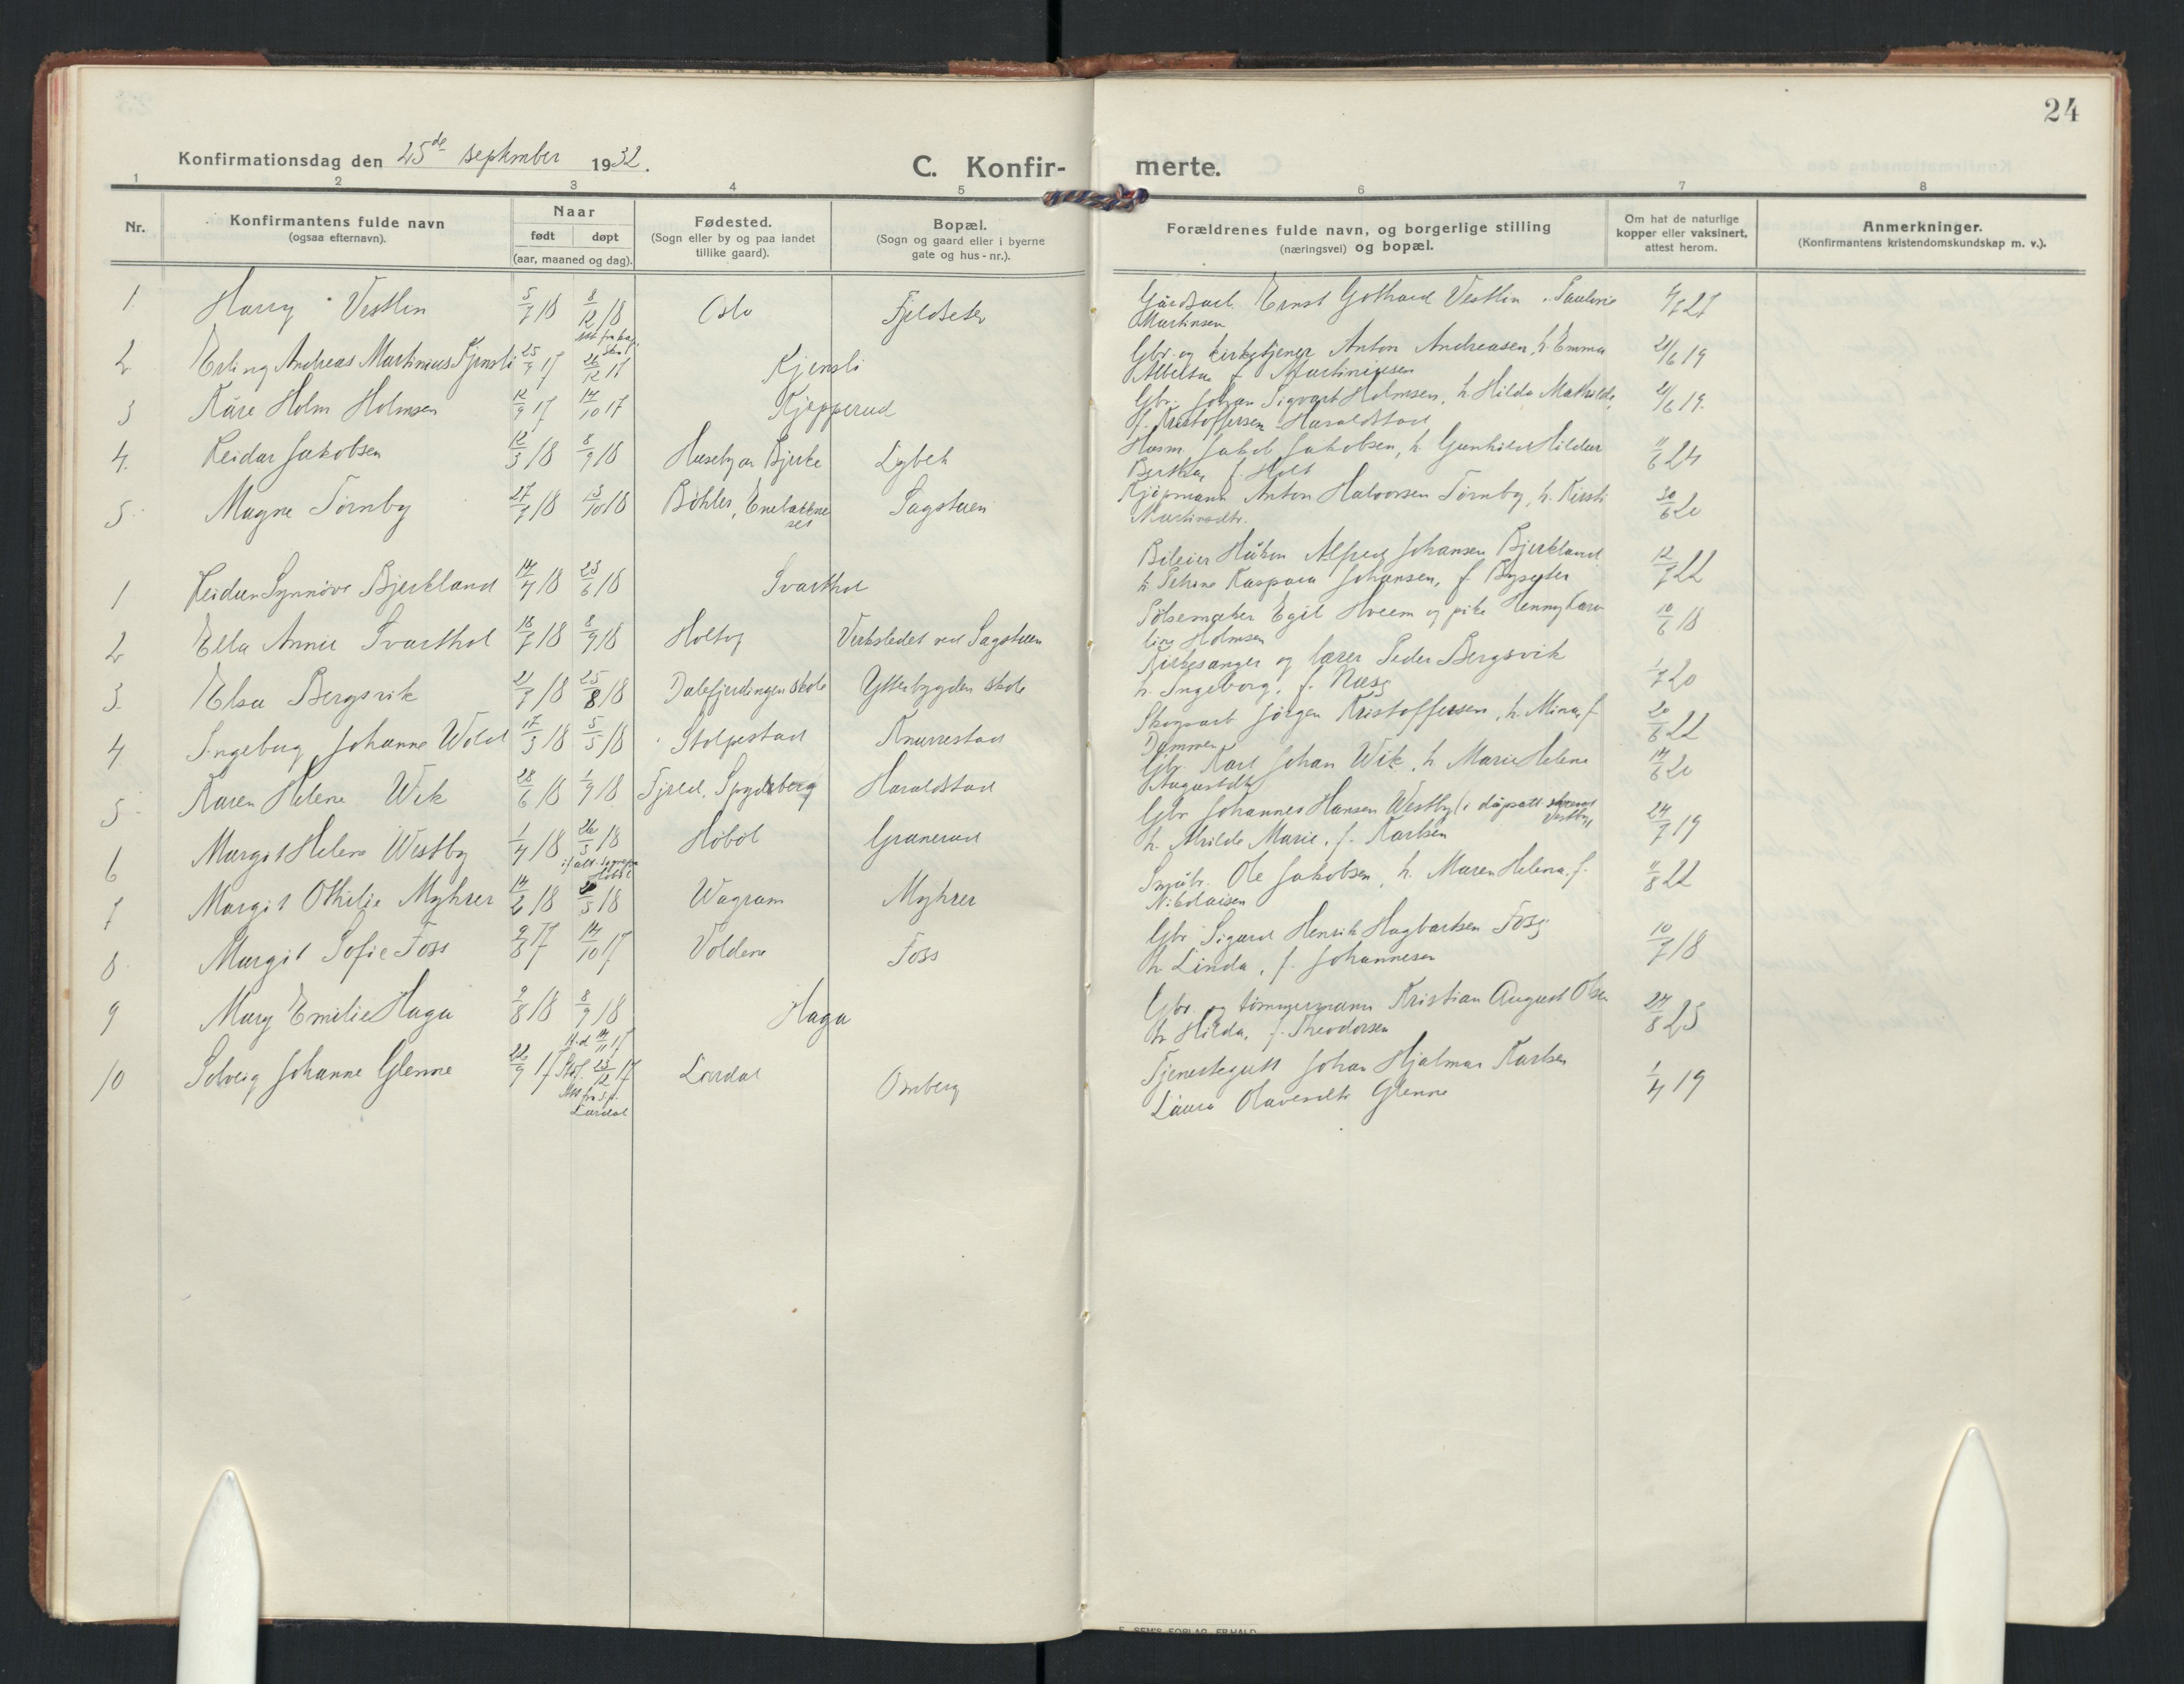 24
Konfirmationsdag den 25de september 1932.
C. Konfir- merte.
1 2 3 4 5 6 7 8
Nr.
Konfirmantens fulde navn
(ogsaa efternavn).
Naar
født døpt
(aar, maaned og dag).
Fødested.
(Sogn eller by og paa landet
tillike gaard).
Bopæl.
(Sogn og gaard eller i byerne
gate og hus-nr.).
Forældrenes fulde navn, og borgerlige stilling
(næringsvei) og bopæl.
Om hat de naturlige
kopper eller vaksinert,
attest herom.
Anmerkninger.
(Konfirmantens kristendomskundskap m. v.).
1. Harry Vestlin 5/7 18 8/12 18 Oslo Fjeldseter Gårdsarb. Ernst Gothard Vestlin
Martinsen
2 Erling Andreas Martinius Kjensli 25/9 17 26/12 17 Kjensli Gbr. og kirketjener Anton Andreasen, h. Emma 21/6 19
f. Martiniussen
3 Kåre Holm Holmsen 12/9 17 14/10 17 Kjepperud Gbr. Johan Sigvart Holmsen, h. Hilda Mathilde, 21/6 19.
f. Kristoffersen Haraldstad
4. Reidar Jakobsen 12/3 18 8/9 18 Huseby av Bjerke Lybek Husm. Jakob Jakobsen, h. Gunhild Hildur 11/6 24
Bertha, f. Holt
5. Magne Tørnby 27/7 18 13/10 18 Bøhler, Enebakkne Sagstuen Kjøpmann Anton Halvorsen Tørnby, h. Kirsti 30/6 20
Martinsdtr.
1 Reidun Synnøve Bjerkland 14/4 18 23/6 18 Svarthol Bileier Håkon Alfred Johansen Bjerkland 12/7 22
h. Petrine Kaspara Johansen, f. Byseter
2 Ella Annie Svarthol 18/7 18 8/9 18 Holtop Verkstedet ved Sagstuen Pølsemaker Egil Hveem og pike Henny Karo- 10/6 18
line Holmsen
3. Elsa Bergsvik 21/7 18 25/8 18 Dalefjerdingen skole Ytterbygden skole Kirkesanger og lærer Peder Bergsvik 1/7 20
h. Ingeborg, f. Næss
4 Ingeborg Johanne Wold 17/3 18 5/5 18 Stolpestad Knurrestad Skogsarb Jørgen Kristoffersen, h. Mina, f. 20/6 22
Dammen
5. Karen Helene Wik 28/6 18 1/9 18 Fjeld, Spydeberg Haraldstad Gbr. Karl Johan Wik, h. Marie Helene 14/6 20
Augustdtr
6 Margit Helene Westby 1/4 18 26/5 18 Høbøl Granerud Gbr Johannes Hansen Westby 24/7 19
h. Milde Marie, f. Karlsen
7 Margit Othilie Myhrer 14/2 18 20/5 18 Wagram Myhrer Småbr. Ole Jakobsen, h. Maren Helena, f. 11/8 22
Nikolaisen
8. Margit Sofie Foss 9/8 17 14/10 17 Voldene Foss Gbr Sigurd Henrik Hagbartsen Foss 10/7 18
h. Linda, f. Johannesen
9 Mary Emilie Haga 9/8 18 8/9 18 Haga Gbr. og tømmermann Kristian August Olsen 24/8 25
h. Hilda, f. Theodorsen
10 Solveig Johanne Glenne 22/9 17 23/12 17 Lardal Omberg Tjenestegutt Johan Hjalmar Karlsen 1/4 19
Laura Olavesdtr Glenne